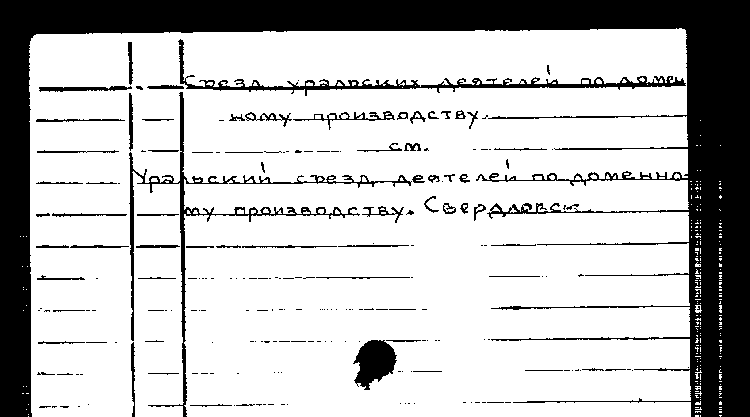 Съезд уральских деятелей по домен
ному производству.
см.
Уральский съезд деятелей по доменно-
му производству. Свердловск